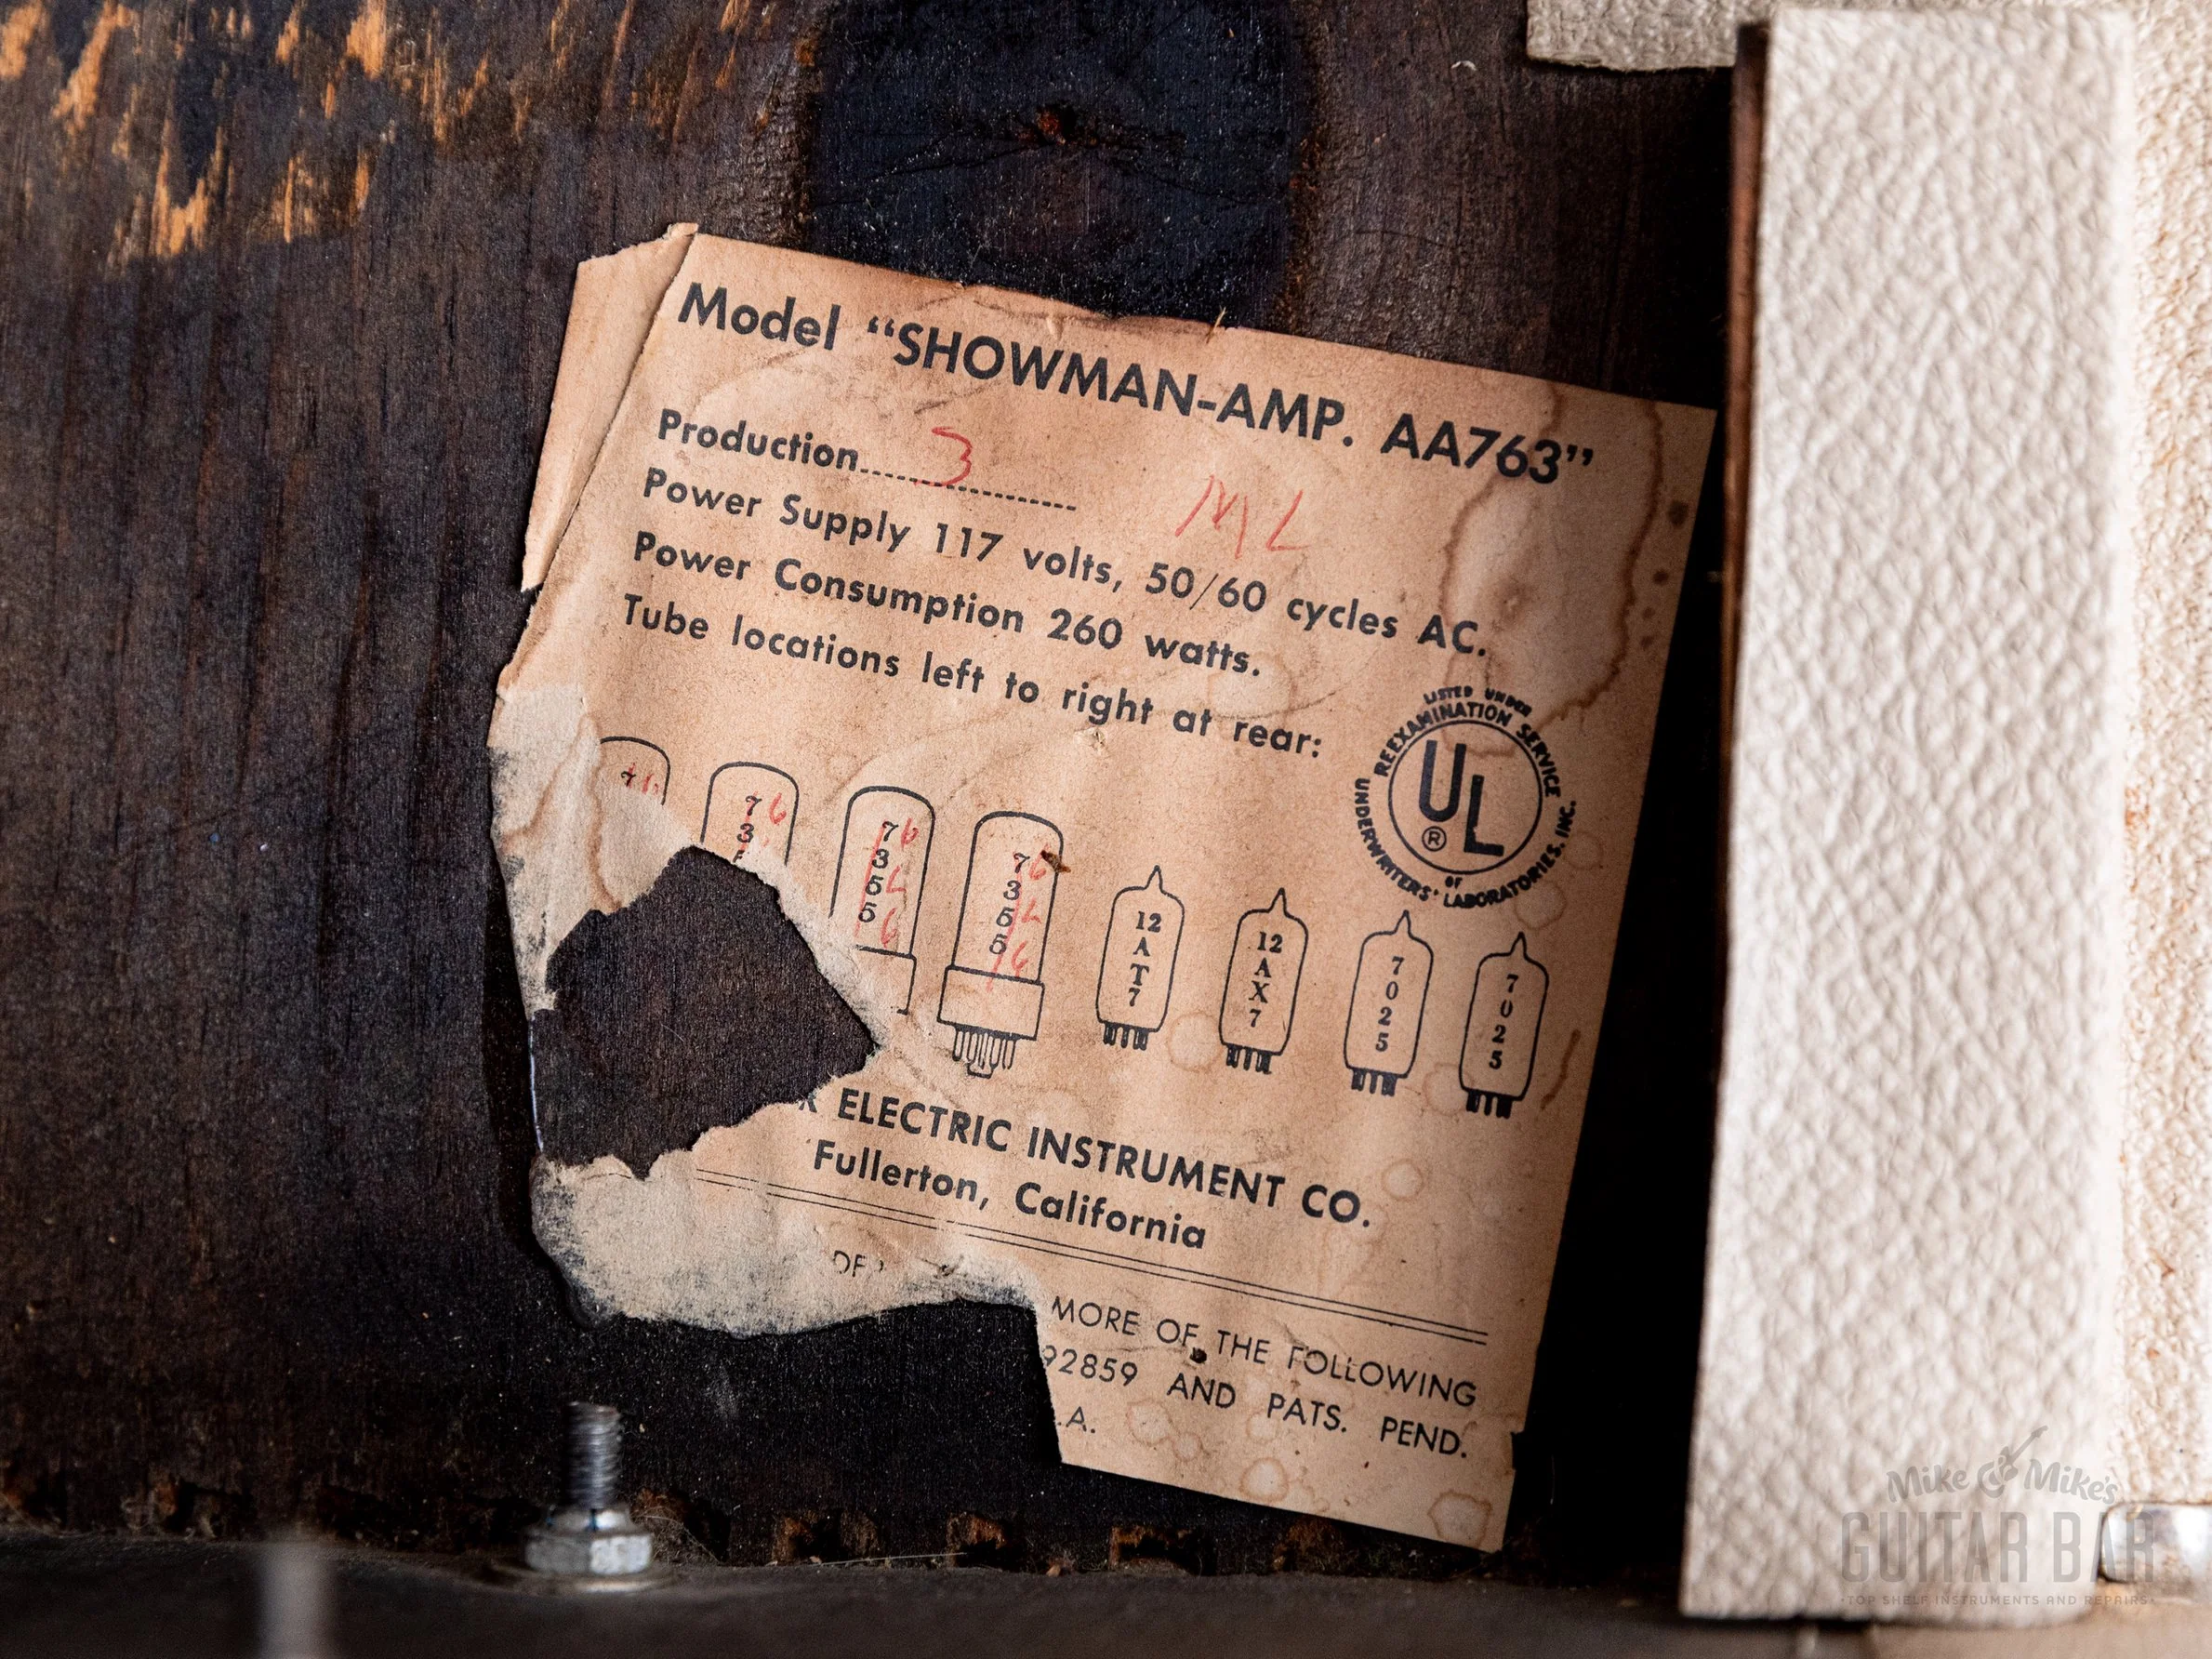 Model “SHOWMAN-AMP. AA763”
Production.................... 3
ML
Power Supply 117 volts, 50/60 cycles AC.
Power Consumption 260 watts.
Tube locations left to right at rear:
LISTED UNDER
REEXAMINATION SERVICE
UL
®
OF
UNDERWRITERS' LABORATORIES, INC.
7 6
7355 6L6
7355 6L6
12AT7
12AX7
7025
7025
R ELECTRIC INSTRUMENT CO.
Fullerton, California
MORE OF THE FOLLOWING
92859 AND PATS. PEND.
.A.
Mike & Mike's
GUITAR BAR
•TOP SHELF INSTRUMENTS AND REPAIRS•